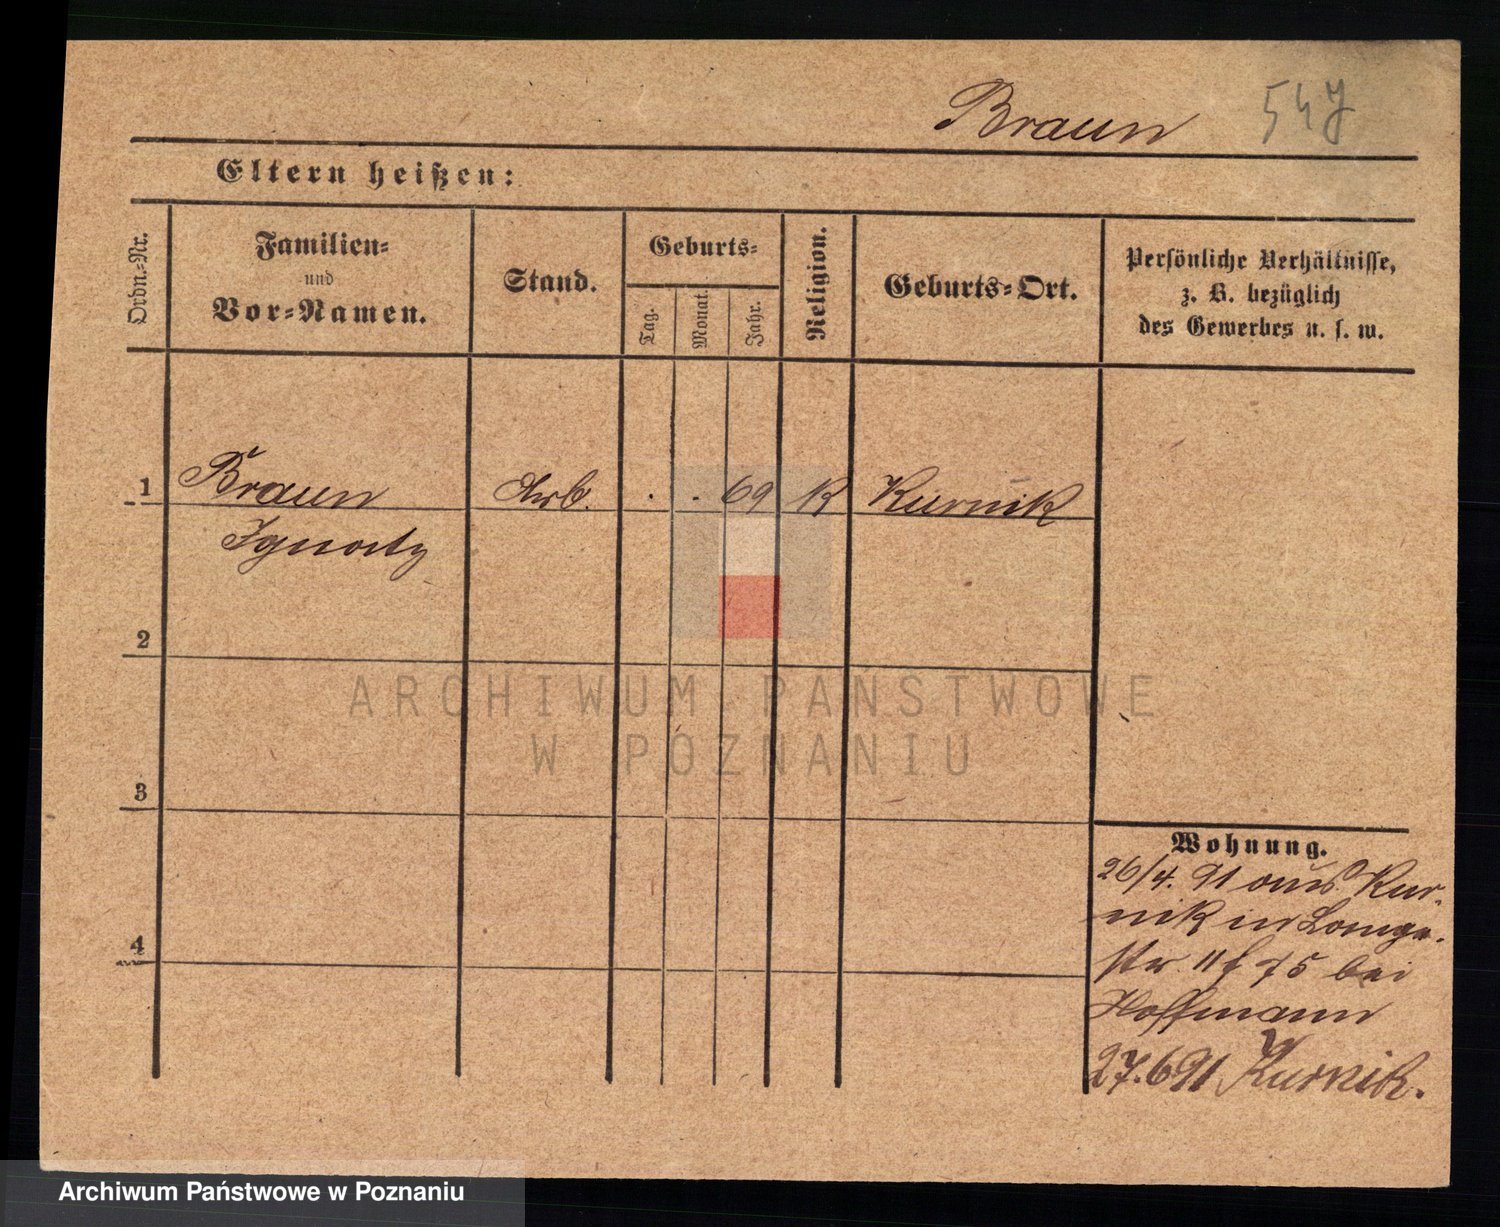 Braun 547
Eltern heißen:
Ordn.-Nr.
Familien-
und
Vor-Namen.
Stand.
Geburts-
Tag.
Monat.
Jahr.
Religion.
Geburts-Ort.
Persönliche Verhältnisse,
z. B. bezüglich
des Gewerbes u. s. w.
1 Braun Arb. . . 69 K Kurnik
Ignatz
2
3
4
ARCHIWUM PAŃSTWOWE
W POZNANIU
Wohnung.
26/4. 91 aus Kur-
nik in Lange-
str. 11 f 75 bei
Hoffmann
27.6 91 Kurnik.
Archiwum Państwowe w Poznaniu